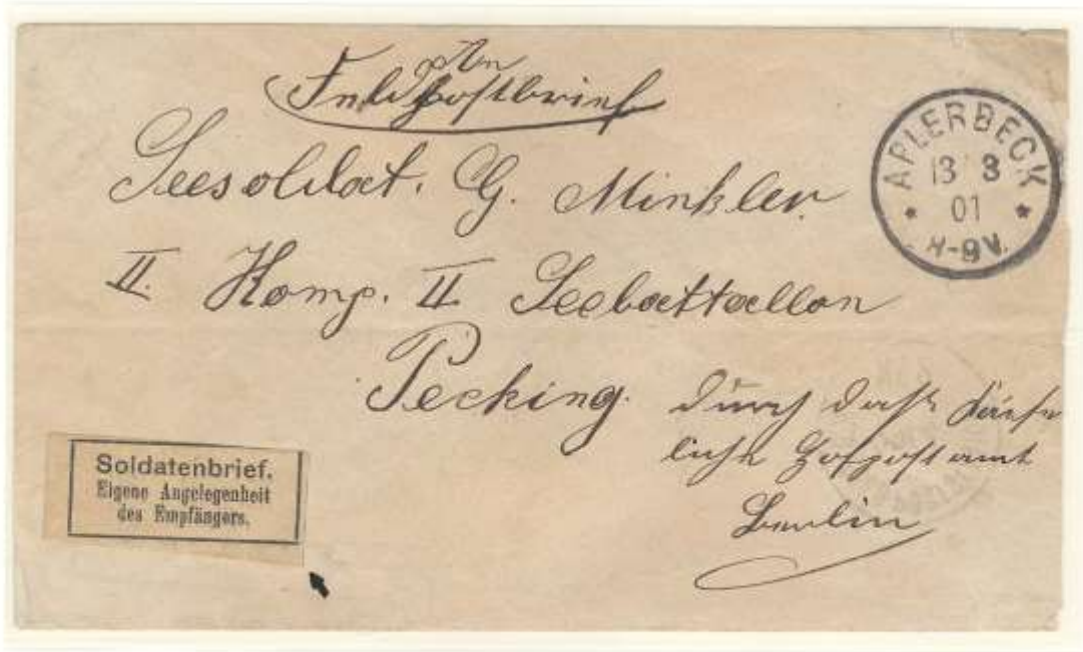 An
Feldpostbrief
Seesoldat. G. Minkler.
II. Komp. II Seebattallon
Pecking. durch dash Kaiser
liche Hofpostamt
Berlin
APLERBECK
13 3
01
* *
-9V.
Soldatenbrief.
Eigene Angelegenheit
des Empfängers.